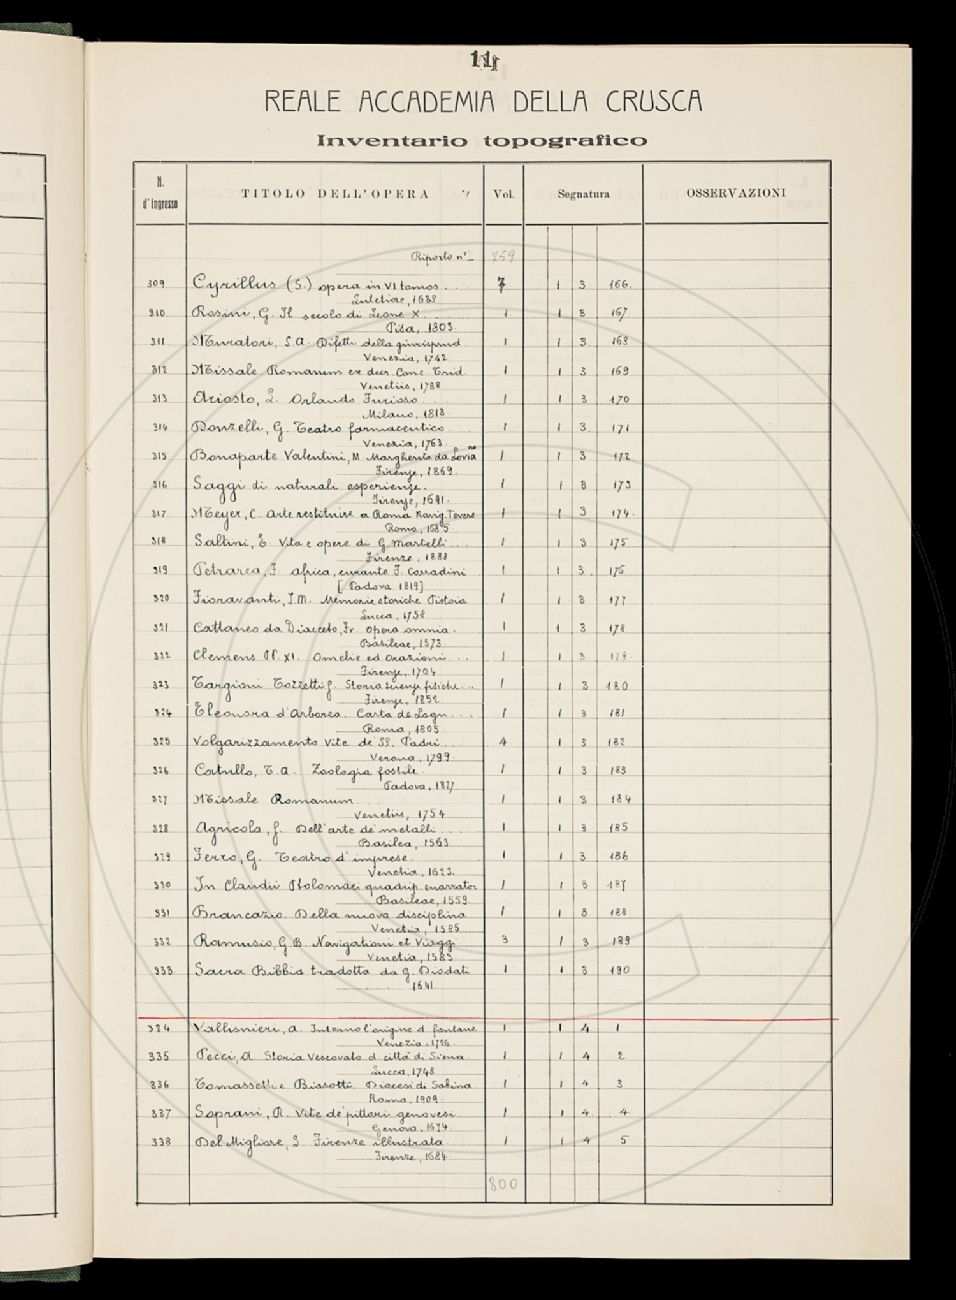 11
REALE ACCADEMIA DELLA CRUSCA
Inventario topografico
N. d'ingresso TITOLO DELL'OPERA Vol. Segnatura OSSERVAZIONI
Riporto n° 759
309 Cyrillus (S.) opera in VI tomos. 7 1 3 166.
Lutetiae, 1638
310 Rosini, G. Il secolo di Leone X. 1 1 3 167
Pisa, 1803
311 Muratori, L.A. Difetti della giurisprud. 1 1 3 168
Venezia, 1742
312 Missale Romanum ex decr. Conc. Trid. 1 1 3 169
Venetiis, 1788
313 Ariosto, L. Orlando Furioso 1 1 3 170
Milano, 1818.
314 Donzelli, G. Teatro farmaceutico. 1 1 3 171
Venezia, 1763.
315 Bonaparte Valentini, M. Margherita da 1 1 3 172
Firenze, 1869.
316 Saggi di naturali esperienze. 1 1 3 173
Firenze, 1691.
317 Meyer, C. Arte restituire a Roma navig. Tevere 1 1 3 174.
Roma, 1685
318 Saltini, E. Vita e opere di G. Martelli 1 1 3 175
Firenze, 1888
319 Petrarca, F. Africa, curante F. Corradini 1 1 3. 176
[Padova 1819]
320 Fioravanti, J.M. Memorie storiche Pistoia 1 1 3 177
Lucca, 1758
321 Cattaneo da Diacceto, Fr. Opera omnia. 1 1 3 178
Basileae, 1573
322 Clemens PP. XI. Omelie ed orazioni... 1 1 3 179.
Firenze, 1704
323 Targioni Tozzetti G. Storia scienze fisiche... 1 1 3 180
Firenze, 1852
324 Eleonora d'Arborea. Carta de Logu... 1 1 3 181
Roma, 1805
325 Volgarizzamento Vite de' SS. Padri 4 1 3 182
Verona, 1799
326 Catullo, T.A. Zoologia fossile. 1 1 3 183
Padova, 1827
327 Missale Romanum 1 1 3 184
Venetiis, 1754
328 Agricola, G. Dell'arte de' metalli 1 1 3 185
Basilea, 1563
329 Ferro, G. Teatro d'imprese. 1 1 3 186
Venetia, 1623.
330 In Claudii Ptolomaei quadrip. enarrator 1 1 3 187
Basileae, 1559
331 Brancazio. Della nuova disciplina 1 1 3 188
Venetia, 1585
332 Ramusio, G.B. Navigationi et Viaggi 3 1 3 189
Venetia, 1583
333 Sacra Bibbia tradotta da G. Diodati 1 1 3 190
1641.
334 Vallisnieri, A. Intorno l'origine d. fontane 1 1 4 1
Venezia, 1726
335 Pecci, A. Storia Vescovato d. città di Siena 1 1 4 2
Lucca, 1748
336 Tomassetti e Biasotti. Diocesi di Sabina 1 1 4 3
Roma, 1909.
337 Soprani, R. Vite de' pittori genovesi. 1 1 4 4
Genova, 1674
338 Del Migliore, L. Firenze illustrata 1 1 4 5
Firenze, 1684.
800